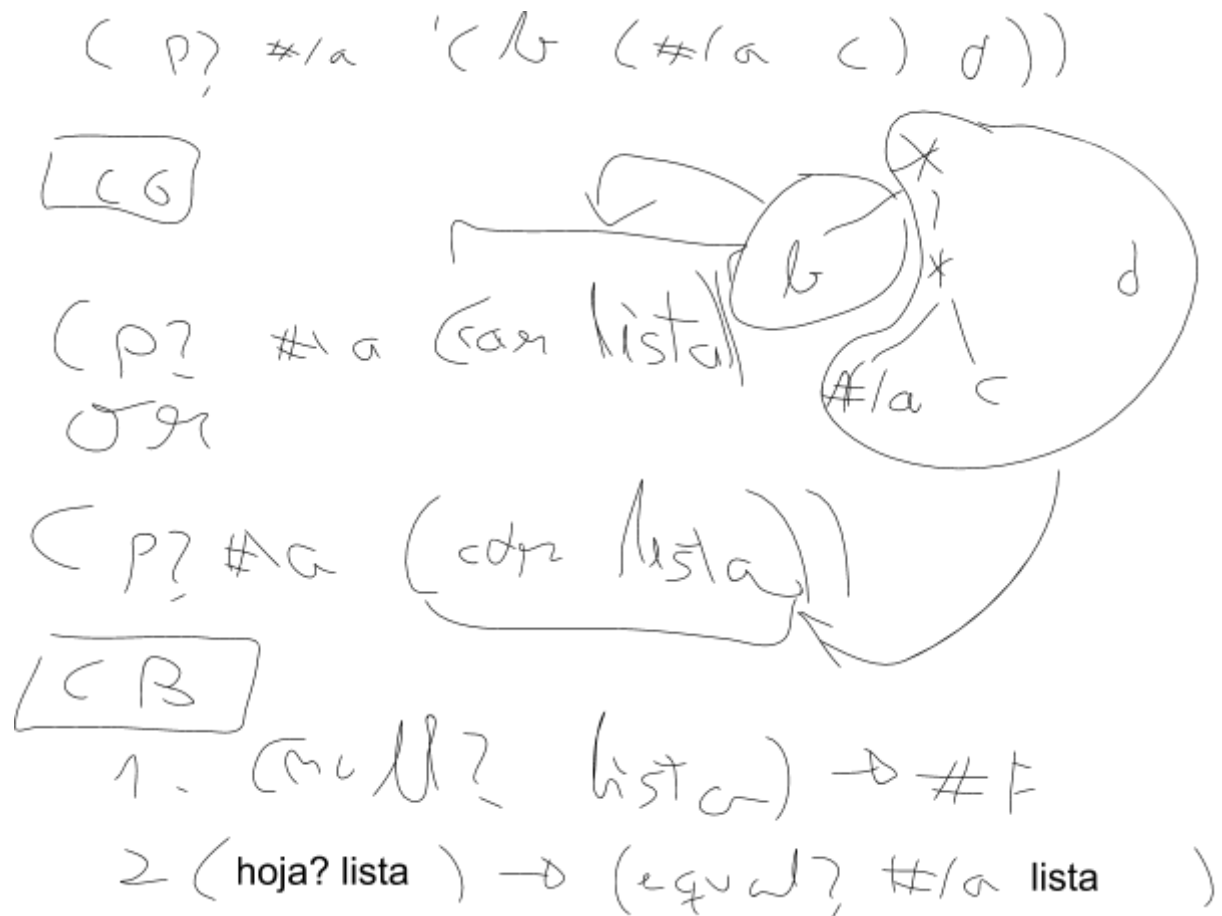 (p? #/a '(b (#/a c) d))
CG
* b * d
(p? #\a (car lista))
#/a c
or
(p? #\a (cdr lista))
CB
1. (null? lista) → #F
2 (hoja? lista) → (equal? #/a lista)